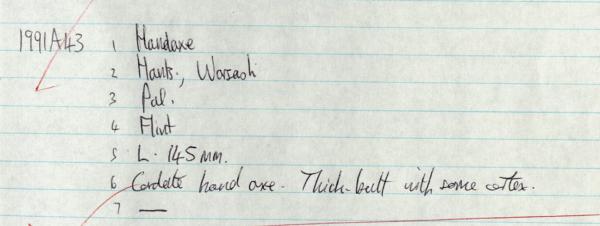 1991A43 1 Handaxe
2 Hants., Warsash
3 Pal.
4 Flint
5 L. 145mm.
6 Cordate hand axe. Thick-butt with some cortex.
7 —